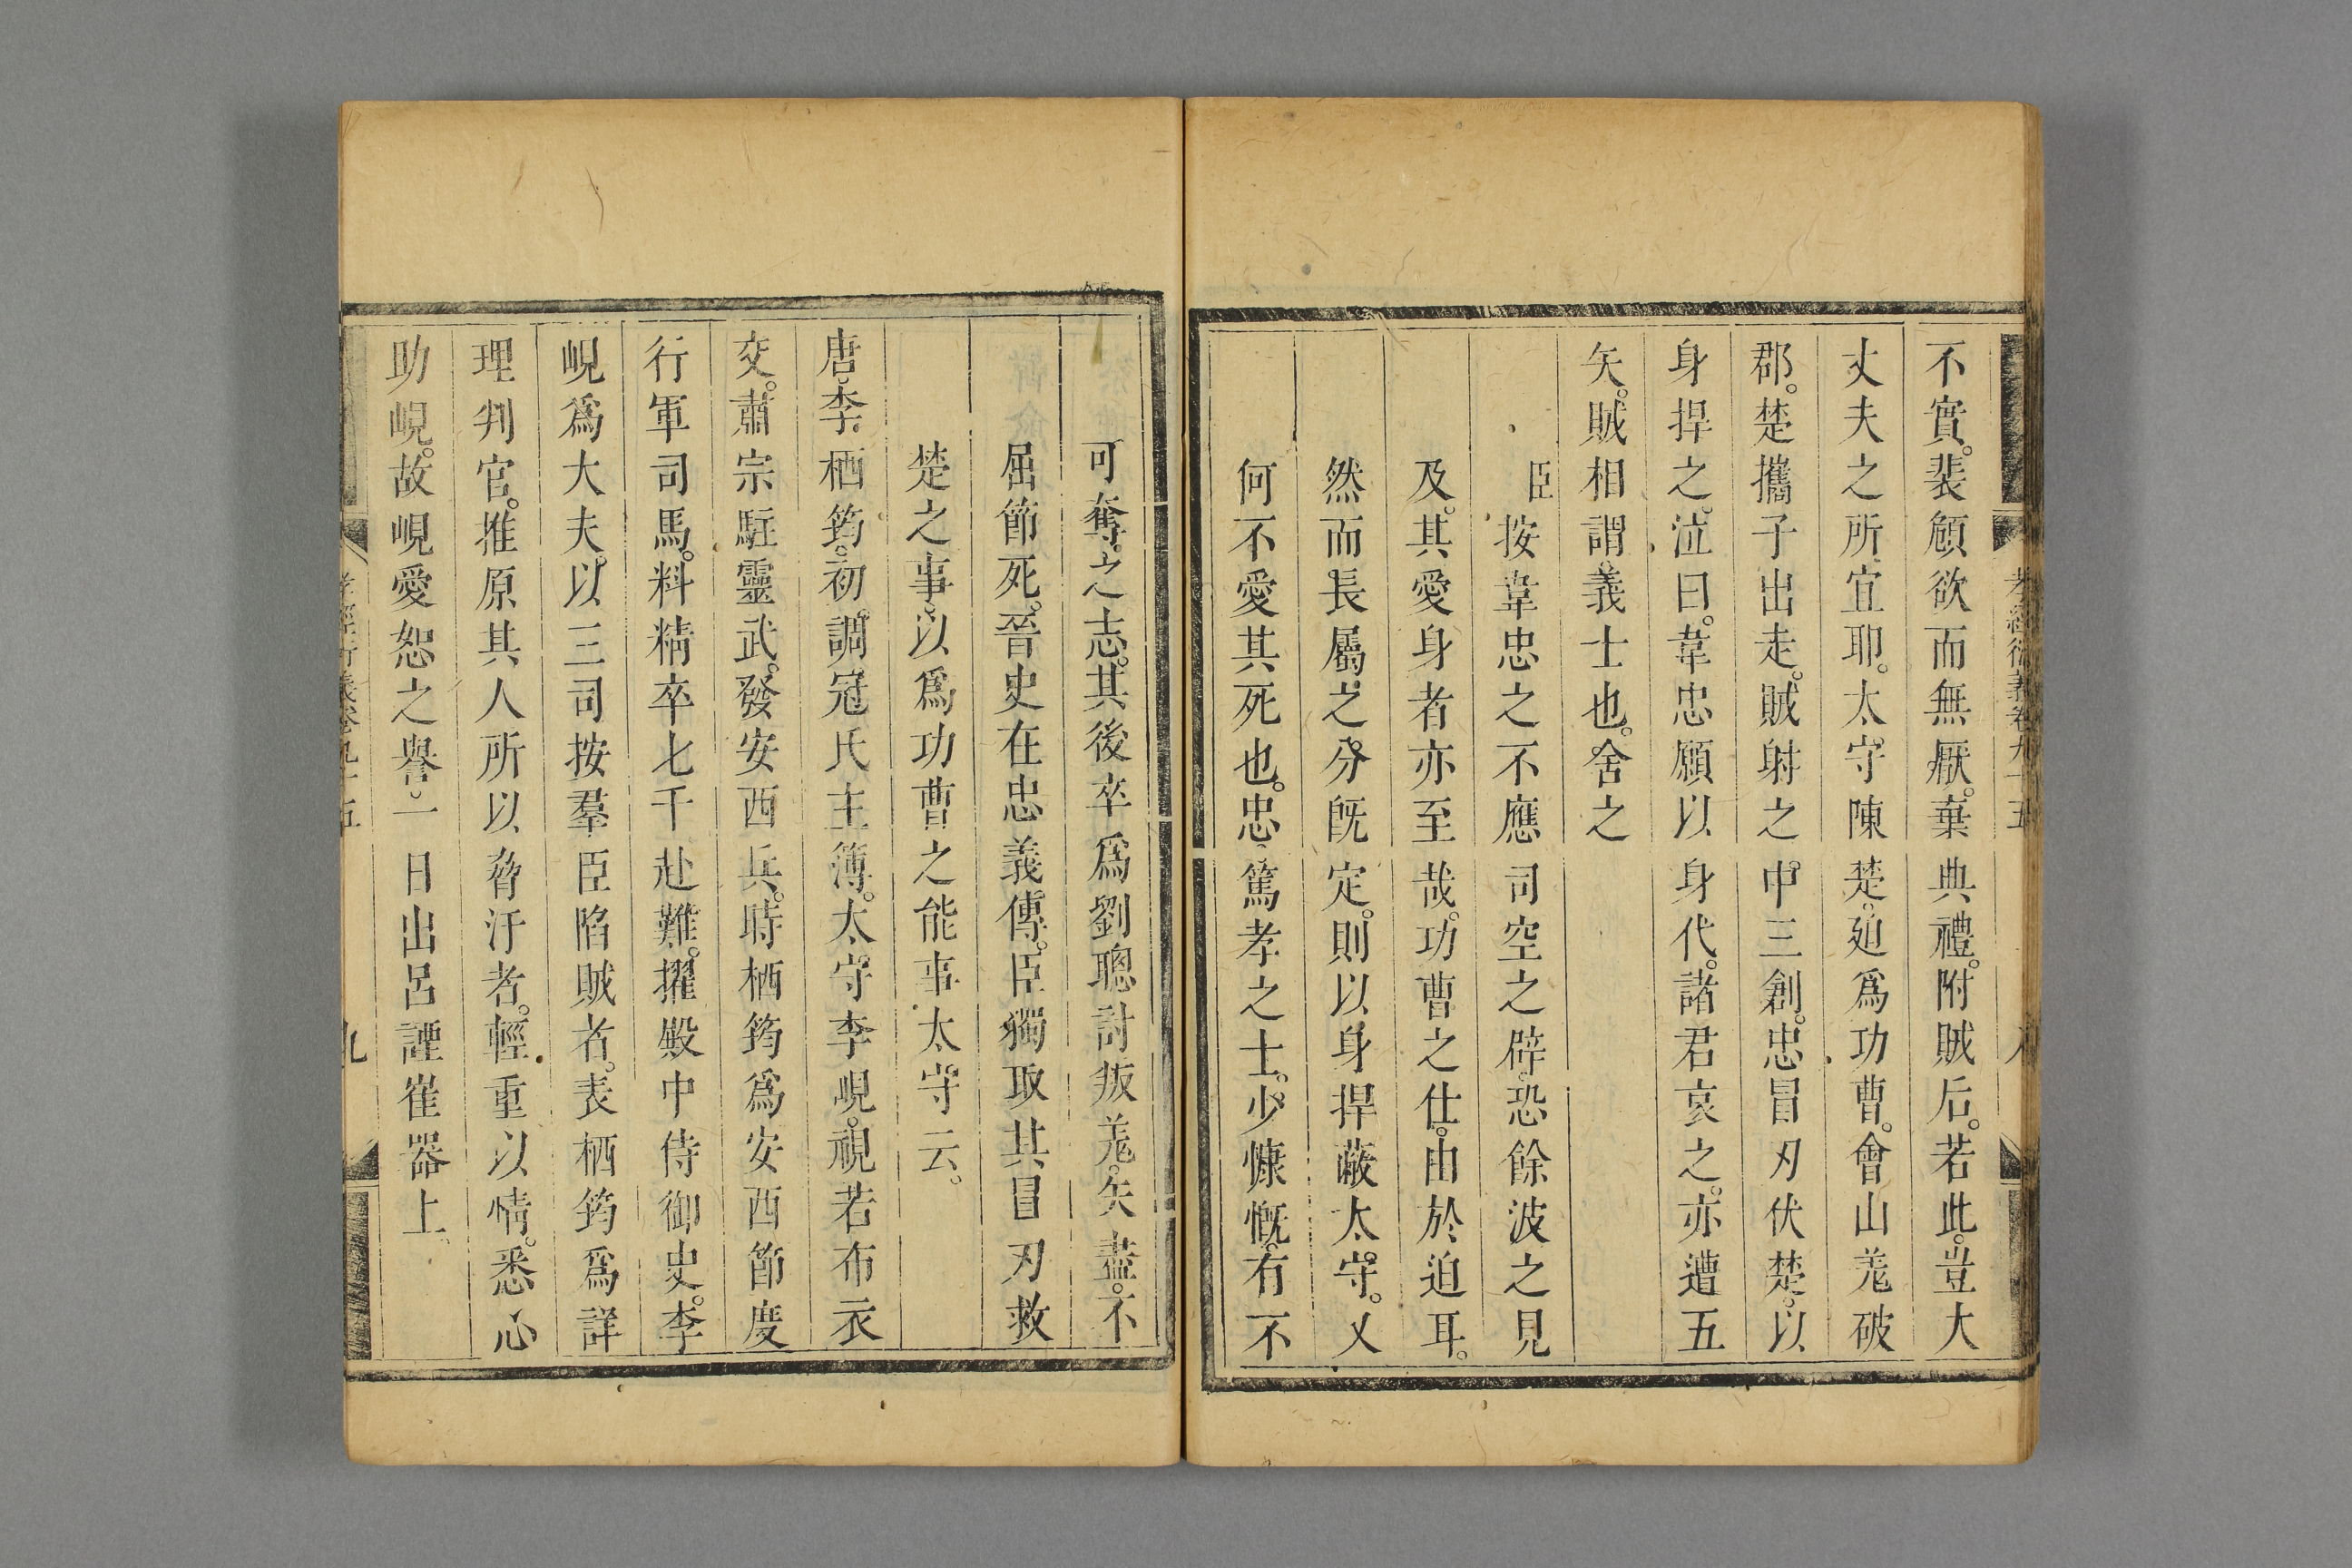 孝經衍義卷九十五 八
不實。裴頠欲而無厭。棄典禮。附賊后。若此。豈大
丈夫之所宜耶。太守陳楚。廹爲功曹。會山羌破
郡。楚攜子出走。賊射之。中三創。忠冒刃伏楚。以
身捍之。泣曰。韋忠願以身代。諸君哀之。亦遭五
矢。賊相謂。義士也。舍之
臣按韋忠之不應司空之辟。恐餘波之見
及。其愛身者亦至哉。功曹之仕。由於迫耳。
然而長屬之分既定。則以身捍蔽太守。乂
何不愛其死也。忠篤孝之士。少慷慨。有不
可奪之志。其後卒爲劉聰討叛羌。矢盡。不
屈節死。晉史在忠義傳。臣獨取其冒刃救
楚之事。以爲功曹之能事太守云。
唐李栖筠。初調冠氏主簿。太守李峴。視若布衣
交。肅宗駐靈武。發安西兵。時栖筠爲安西節度
行軍司馬。料精卒七千赴難。擢殿中侍御史。李
峴爲大夫。以三司按羣臣陷賊者。表栖筠爲詳
理判官。推原其人所以脅汙者。輕重以情。悉心
助峴。故峴愛恕之譽。一日出呂諲崔器上。
孝經衍義卷九十五 九